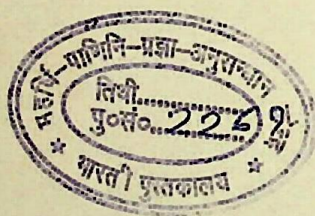 महर्षि-पाणिनि-प्रज्ञा-अनुसन्धान
तिथी..............
पु०सं०....2269
* भारती पुस्तकालय *